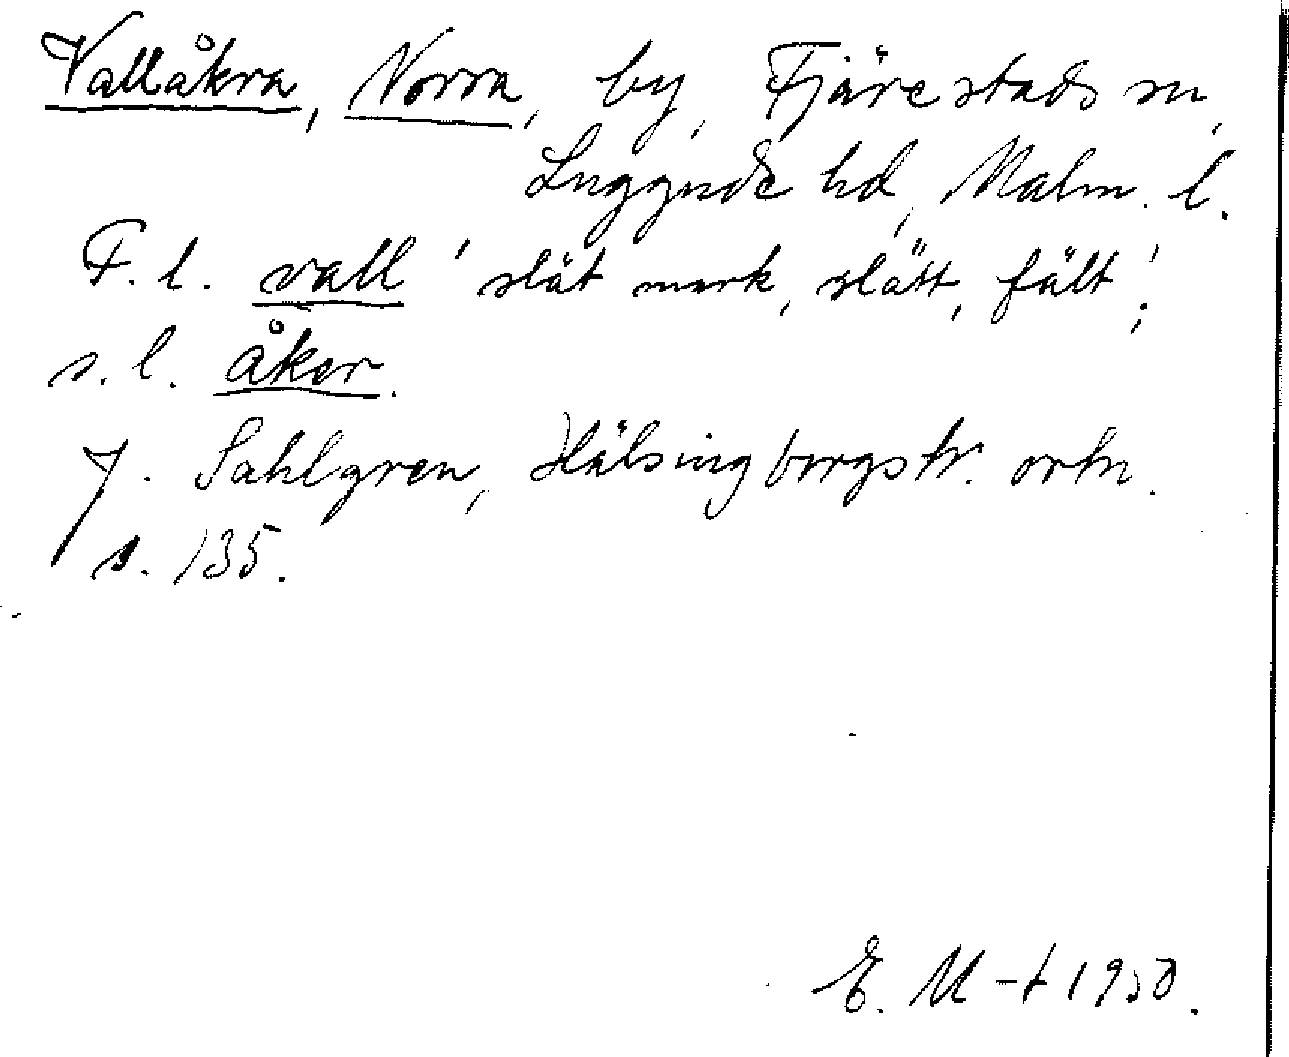 Vallåkra, Norra, by, Fjärestads sn,
Luggude hd, Malm. l.
F. l. vall 'slät mark, slätt, fält';
s. l. åker.
J. Sahlgren, Hälsingborgstr. ortn.
s. 135.
E. M-t 1950.